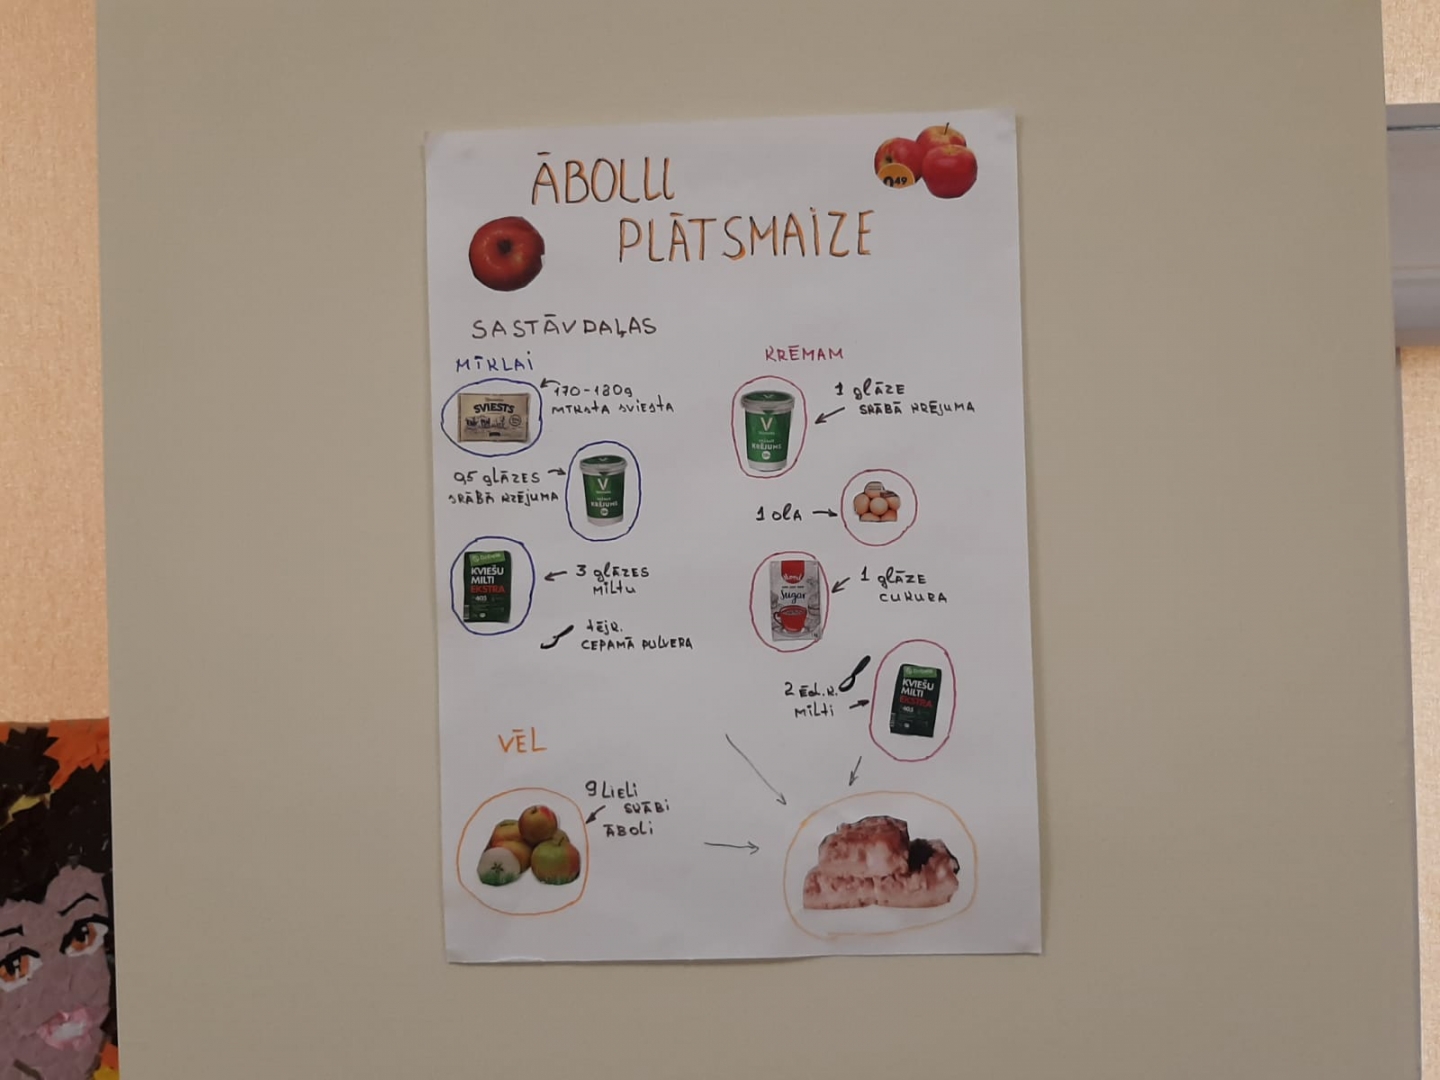 ĀBOLU
PLĀTSMAIZE
49
SASTĀVDAĻAS
MĪKLAI
170-180g
MĪKSTA SVIESTA
SVIESTS
0,5 glāzes
SKĀBĀ KRĒJUMA
V
KRĒJUMS
KVIEŠU
MILTI
EKSTRA
405
3 glāzes
MILTU
tējk.
CEPAMĀ PULVERA
KRĒMAM
1 glāze
SKĀBĀ KRĒJUMA
V
KRĒJUMS
1 ola
1 glāze
CUKURA
Sugar
2 ēd.k.
MILTI
KVIEŠU
MILTI
EKSTRA
405
VĒL
9 LIELI
SKĀBI
ĀBOLI